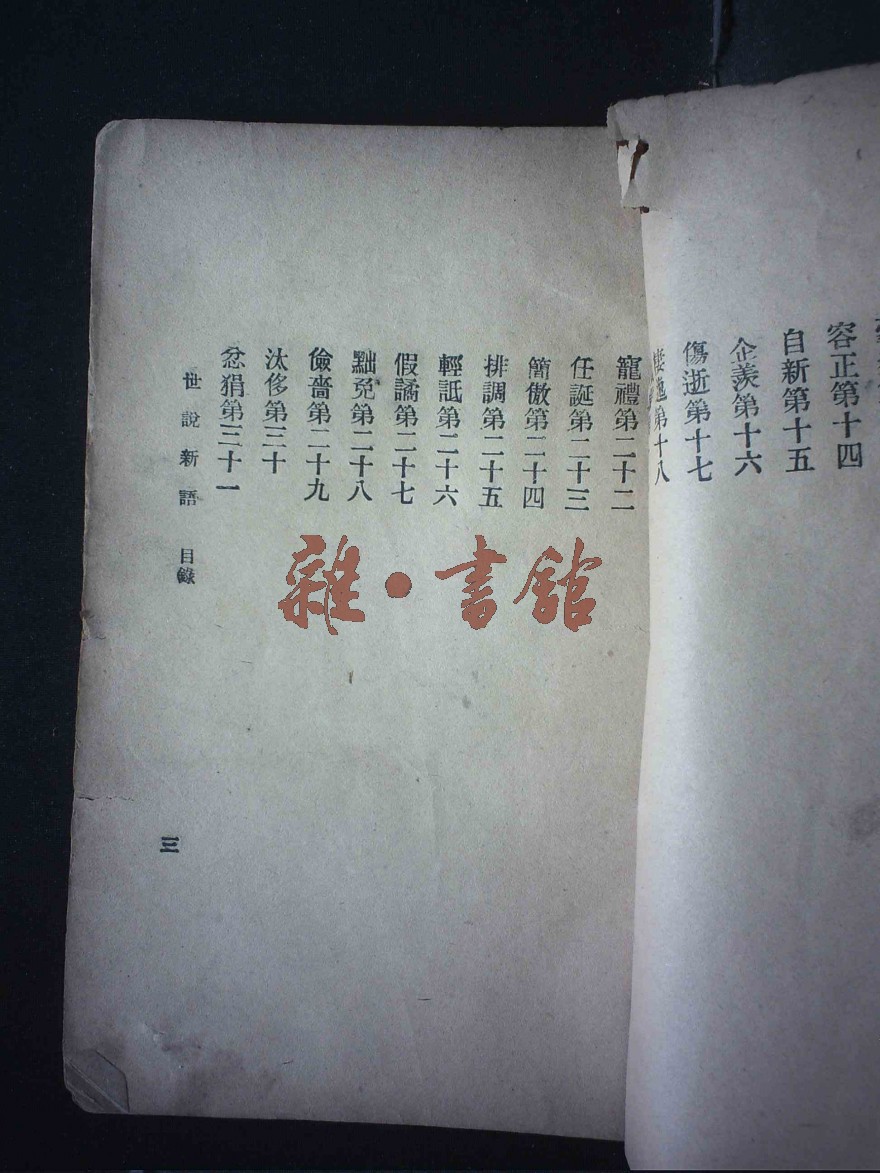 容正第十四
自新第十五
企羨第十六
傷逝第十七
棲逸第十八
寵禮第二十二
任誕第二十三
簡傲第二十四
排調第二十五
輕詆第二十六
假譎第二十七
黜免第二十八
儉嗇第二十九
汰侈第三十
忿狷第三十一
世說新語 目錄
三
雜·書館